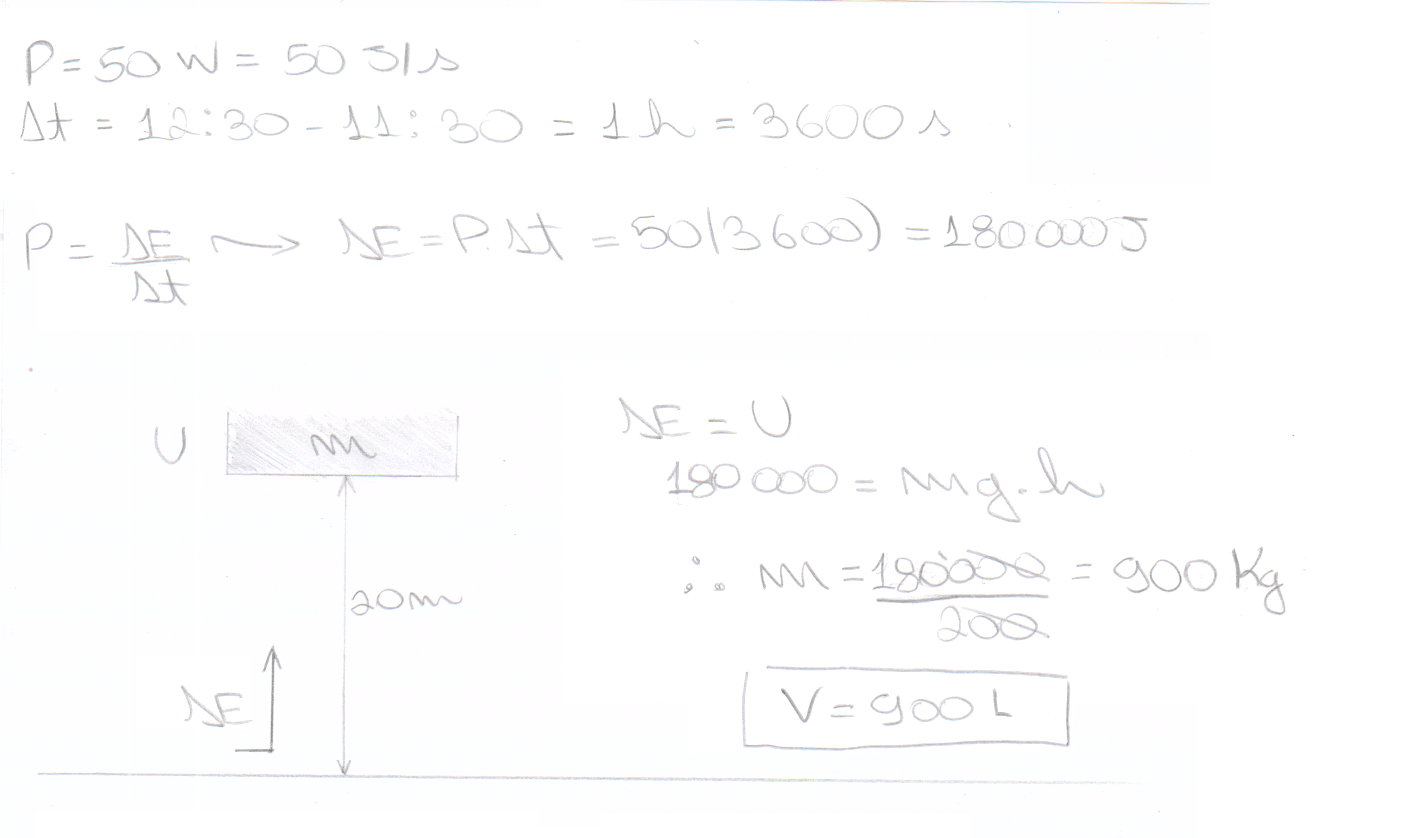 P = 50 W = 50 J/s
Δt = 12:30 - 11:30 = 1 h = 3600 s
P = ΔE/Δt → ΔE = P.Δt = 50(3600) = 180 000 J
ΔE = U
U m
180 000 = mg.h
∴ m = 180000/200 = 900 Kg
20m
ΔE
V = 900 L